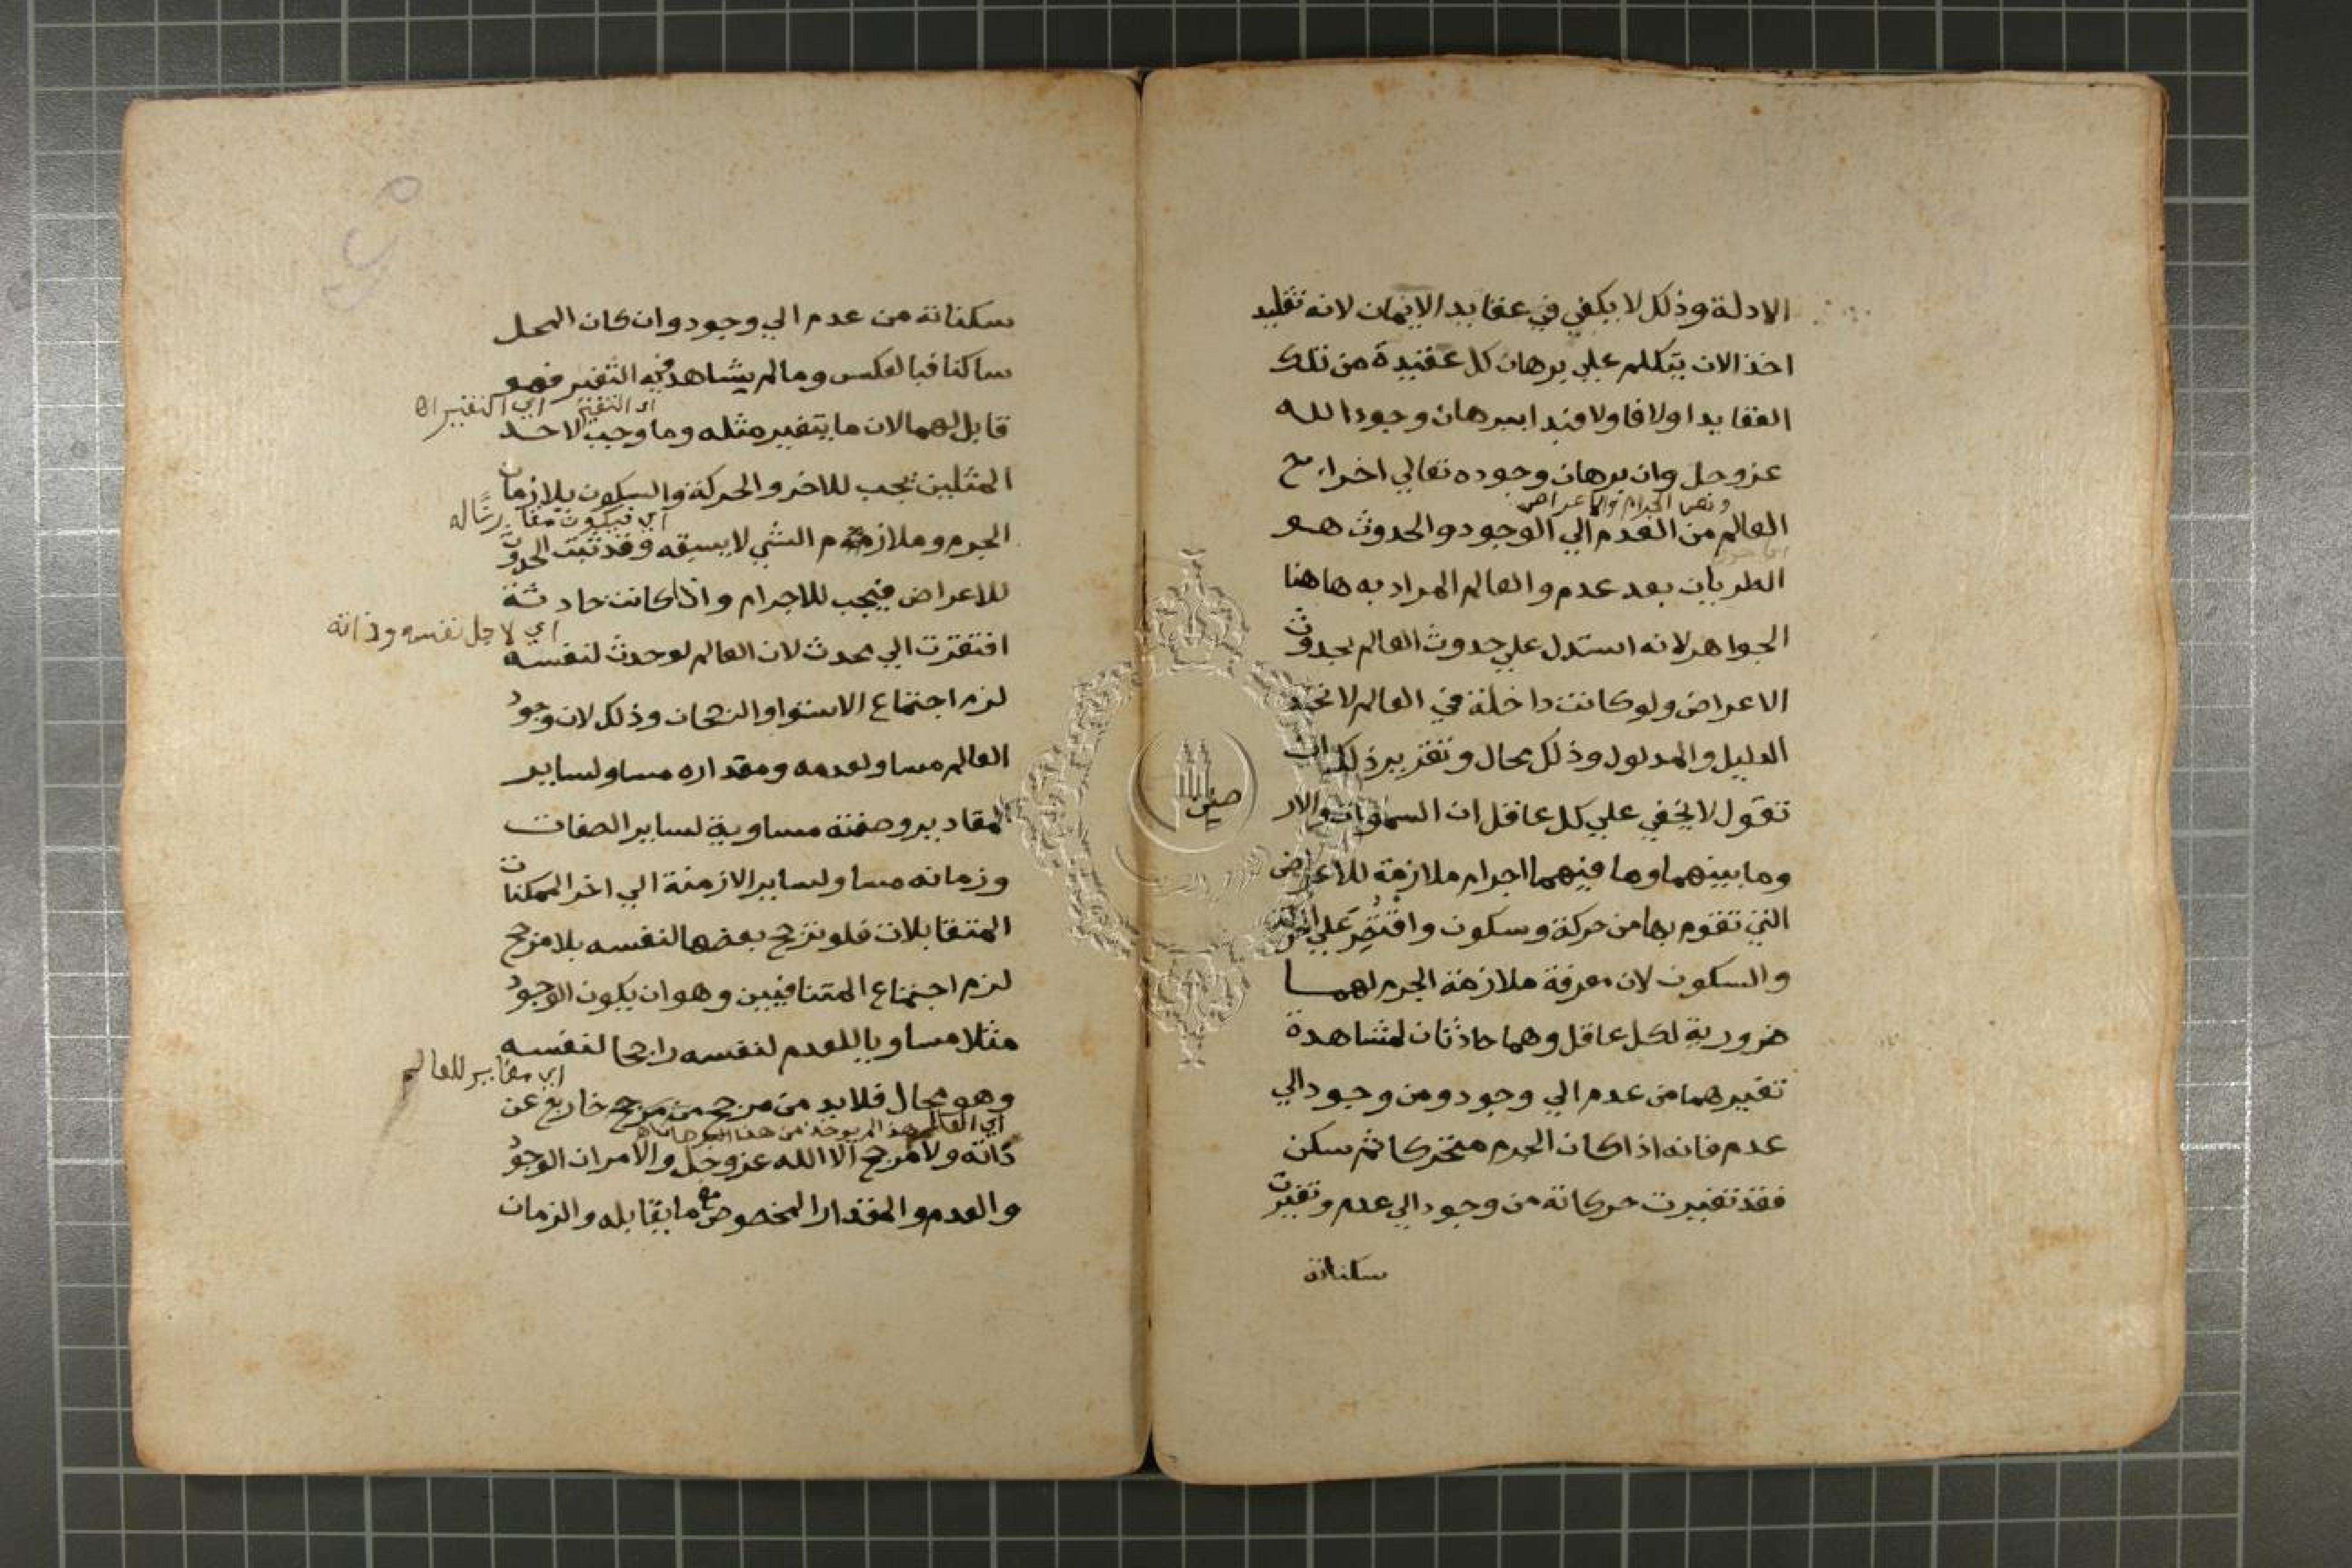 الادلة وذلك لا يكفي في عقايد الايمان لانه تقليد
اخذ الان يتكلم علي برهان كل عقيدة من تلك
العقايد اولا فاولا فبدا ببرهان وجود الله
عز وجل وان برهان وجوده تعالي اخراج
العالم من العدم الي الوجود والحدوث هو
الطريان بعد عدم والعالم المراد به هاهنا
الجواهر لانه استدل علي حدوث العالم بحدوث
الاعراض ولو كانت داخلة في العالم لاتحد
الدليل والمدلول وذلك محال وتقرير ذلك ان
تقول لا يخفي علي كل عاقل ان السموات والار
وما بينهما وما فيهما اجرام ملازمة للاعراض
التي تقوم بها من حركة وسكون واقتصر علي الحركة
والسكون لان معرفة ملازمة الجرم لهما
ضرورية لكل عاقل وهما حادثان لمشاهدة
تغييرهما من عدم الي وجود ومن وجود الي
عدم فانه اذا كان الجرم متحركا ثم سكن
فقد تغيرت حركاته من وجود الي عدم وتغيرت
سكناته
سكناته من عدم الي وجود وان كان المحل
ساكنا فبالعكس وما لم يشاهد فيه التغير فهو
اي التغيير
قابل لهما لان ما يتغير مثله وما وجب لاحد
المثلين يجب للاخر والحركة والسكون يلازمان
اي فيكون
الجرم وملازم الشي لا يسبقه وقد ثبت الحدوث
للاعراض فيجب للاجرام واذا كانت حادثة
اي لاجل نفسه وذاته
افتقرت الي محدث لان العالم لو حدث لنفسه
لزم اجتماع الاستوا والرجحان وذلك لان وجود
العالم مساو لعدمه ومقداره مساو لساير
المقادير وصفته مساوية لساير الصفات
وزمانه مساو لساير الازمنة الي اخر الممكنات
المتقابلات فلو ترجح بعضها لنفسه بلا مرجح
لزم اجتماع المتنافيين وهو ان يكون الوجود
مثلا مساويا للعدم لنفسه راجحا لنفسه
اي مغاير للعالم
وهو محال فلا بد من مرجح من مرجح خارج عن
ذاته ولا مرجح الا الله عز وجل والامران الوجود
والعدم والمقدار المخصوص مع ما يقابله والزمان